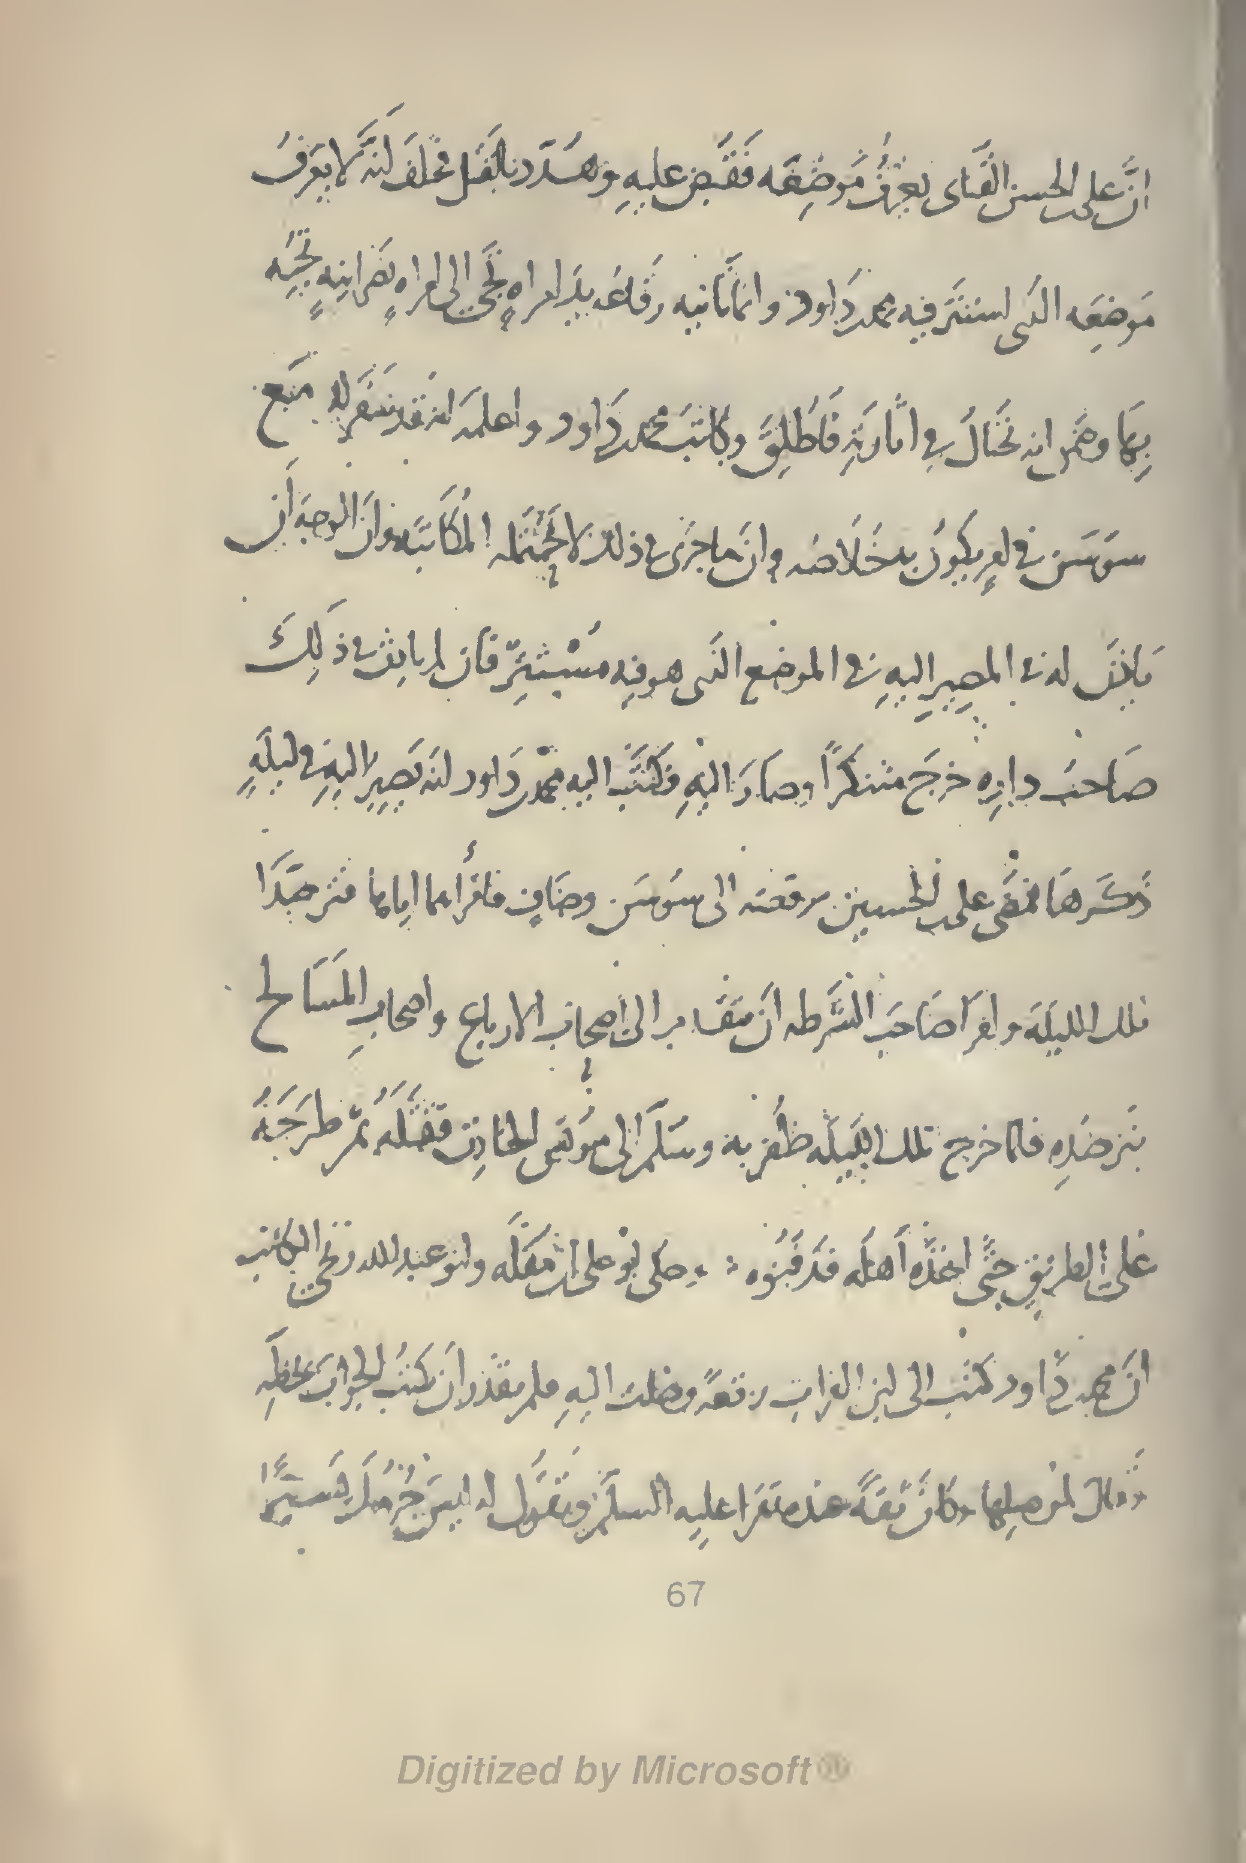 انَّ على الحسن القنای يعرف مَوضِعَه فقبض عليهِ وهدّد بالقتل فحلف انه لا يعرف
مَوضِعَه الذى استتر فيه محمد بن داود وانما تاتيه رقاعه بيد امراهٍ تجئ الى امراهٍ نصرانيهٍ تجيئه
بها وضمن انه يحتال فى اثارته فاطلق وكاتب محمد بن داود واعلمه انه قد سفر له مع
سوسن فى امرٍ يكون به خلاصه وان ما جرى فى ذلك لا يحتمله المكاتبه وان الوجه ان
ياذن له فى المصير اليه فى الموضع الذى هو فيه مُستتر فان لم ياذن فى ذلك
صاحب داره خرج متنكرًا وصار اليه فكتب اليه محمد بن داود انه يصير اليه فى ليلهٍ
ذكرها فمضى على بن الحسين برقعته الى سوسن وصافٍ فاقرأهما اياها فترصدا
تلك الليله وامرا صاحب الشرطه ان يتقدم الى اصحاب الارباع واصحاب المسالح
بترصده فلما خرج تلك الليله ظفر به وسلم الى مونس الخادم فقتله ثم طرحه
على الطريق حتى اخذه اهله فدفنوه وحكى ابو على ابن مقله وابو عبد الله زنجى الكاتب
ان محمد بن داود كتب الى ابن الفرات رقعةً وصلت اليه فلم يقدر ان يكتب الجواب بخطه
وقال لموصلها وكان ثقةً عنده تقرا عليه السلم وتقول له ليس جرمك يسيرًا
67
Digitized by Microsoft®